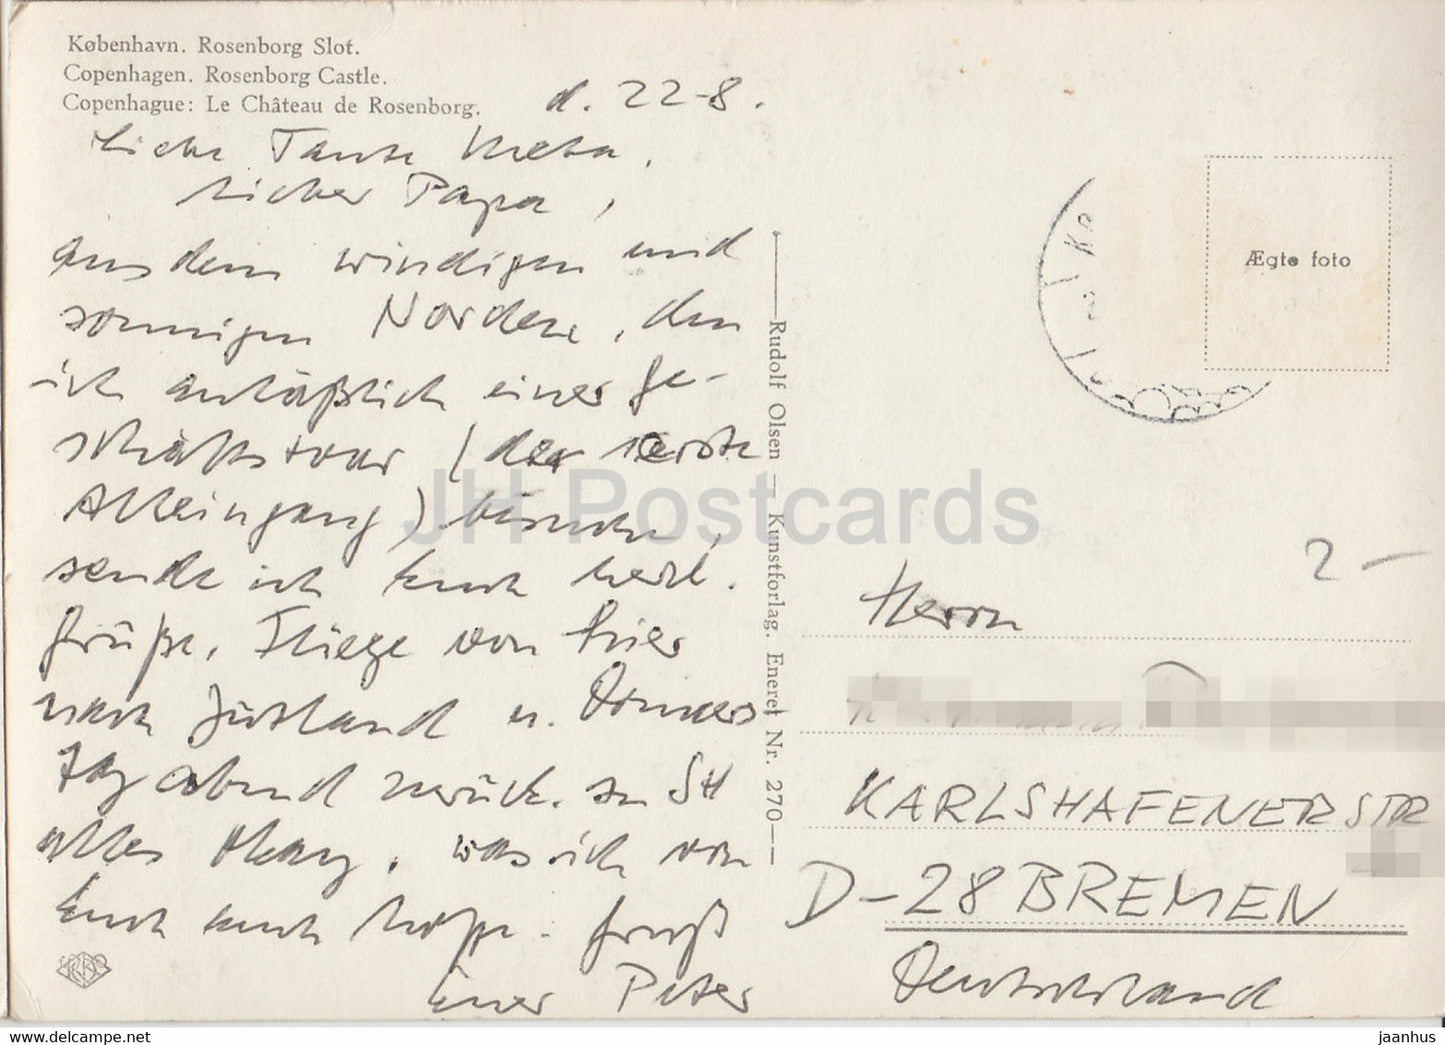 København. Rosenborg Slot.
Copenhagen. Rosenborg Castle.
Copenhague: Le Château de Rosenborg.
d. 22-8.
Liebe Tante Meta,
Lieber Papa,
aus dem windigen und
sonnigen Norden, den
ich anläßlich einer Ge-
schäftstour (der erste
Alleingang) besuche,
sende ich Euch herzl.
Grüße. Fliege von hier
nach Jütland u. Donners
tag abend zurück. In SH
alles okay, was ich von
Euch auch hoffe. Gruß
Euer Peter
Rudolf Olsen – Kunstforlag. Eneret Nr. 270
Ægte foto
2-
Herrn
KARLSHAFENER STR
D-28 BREMEN
Deutschland
JH Postcards
www.jhpostcards.com
jaanhus